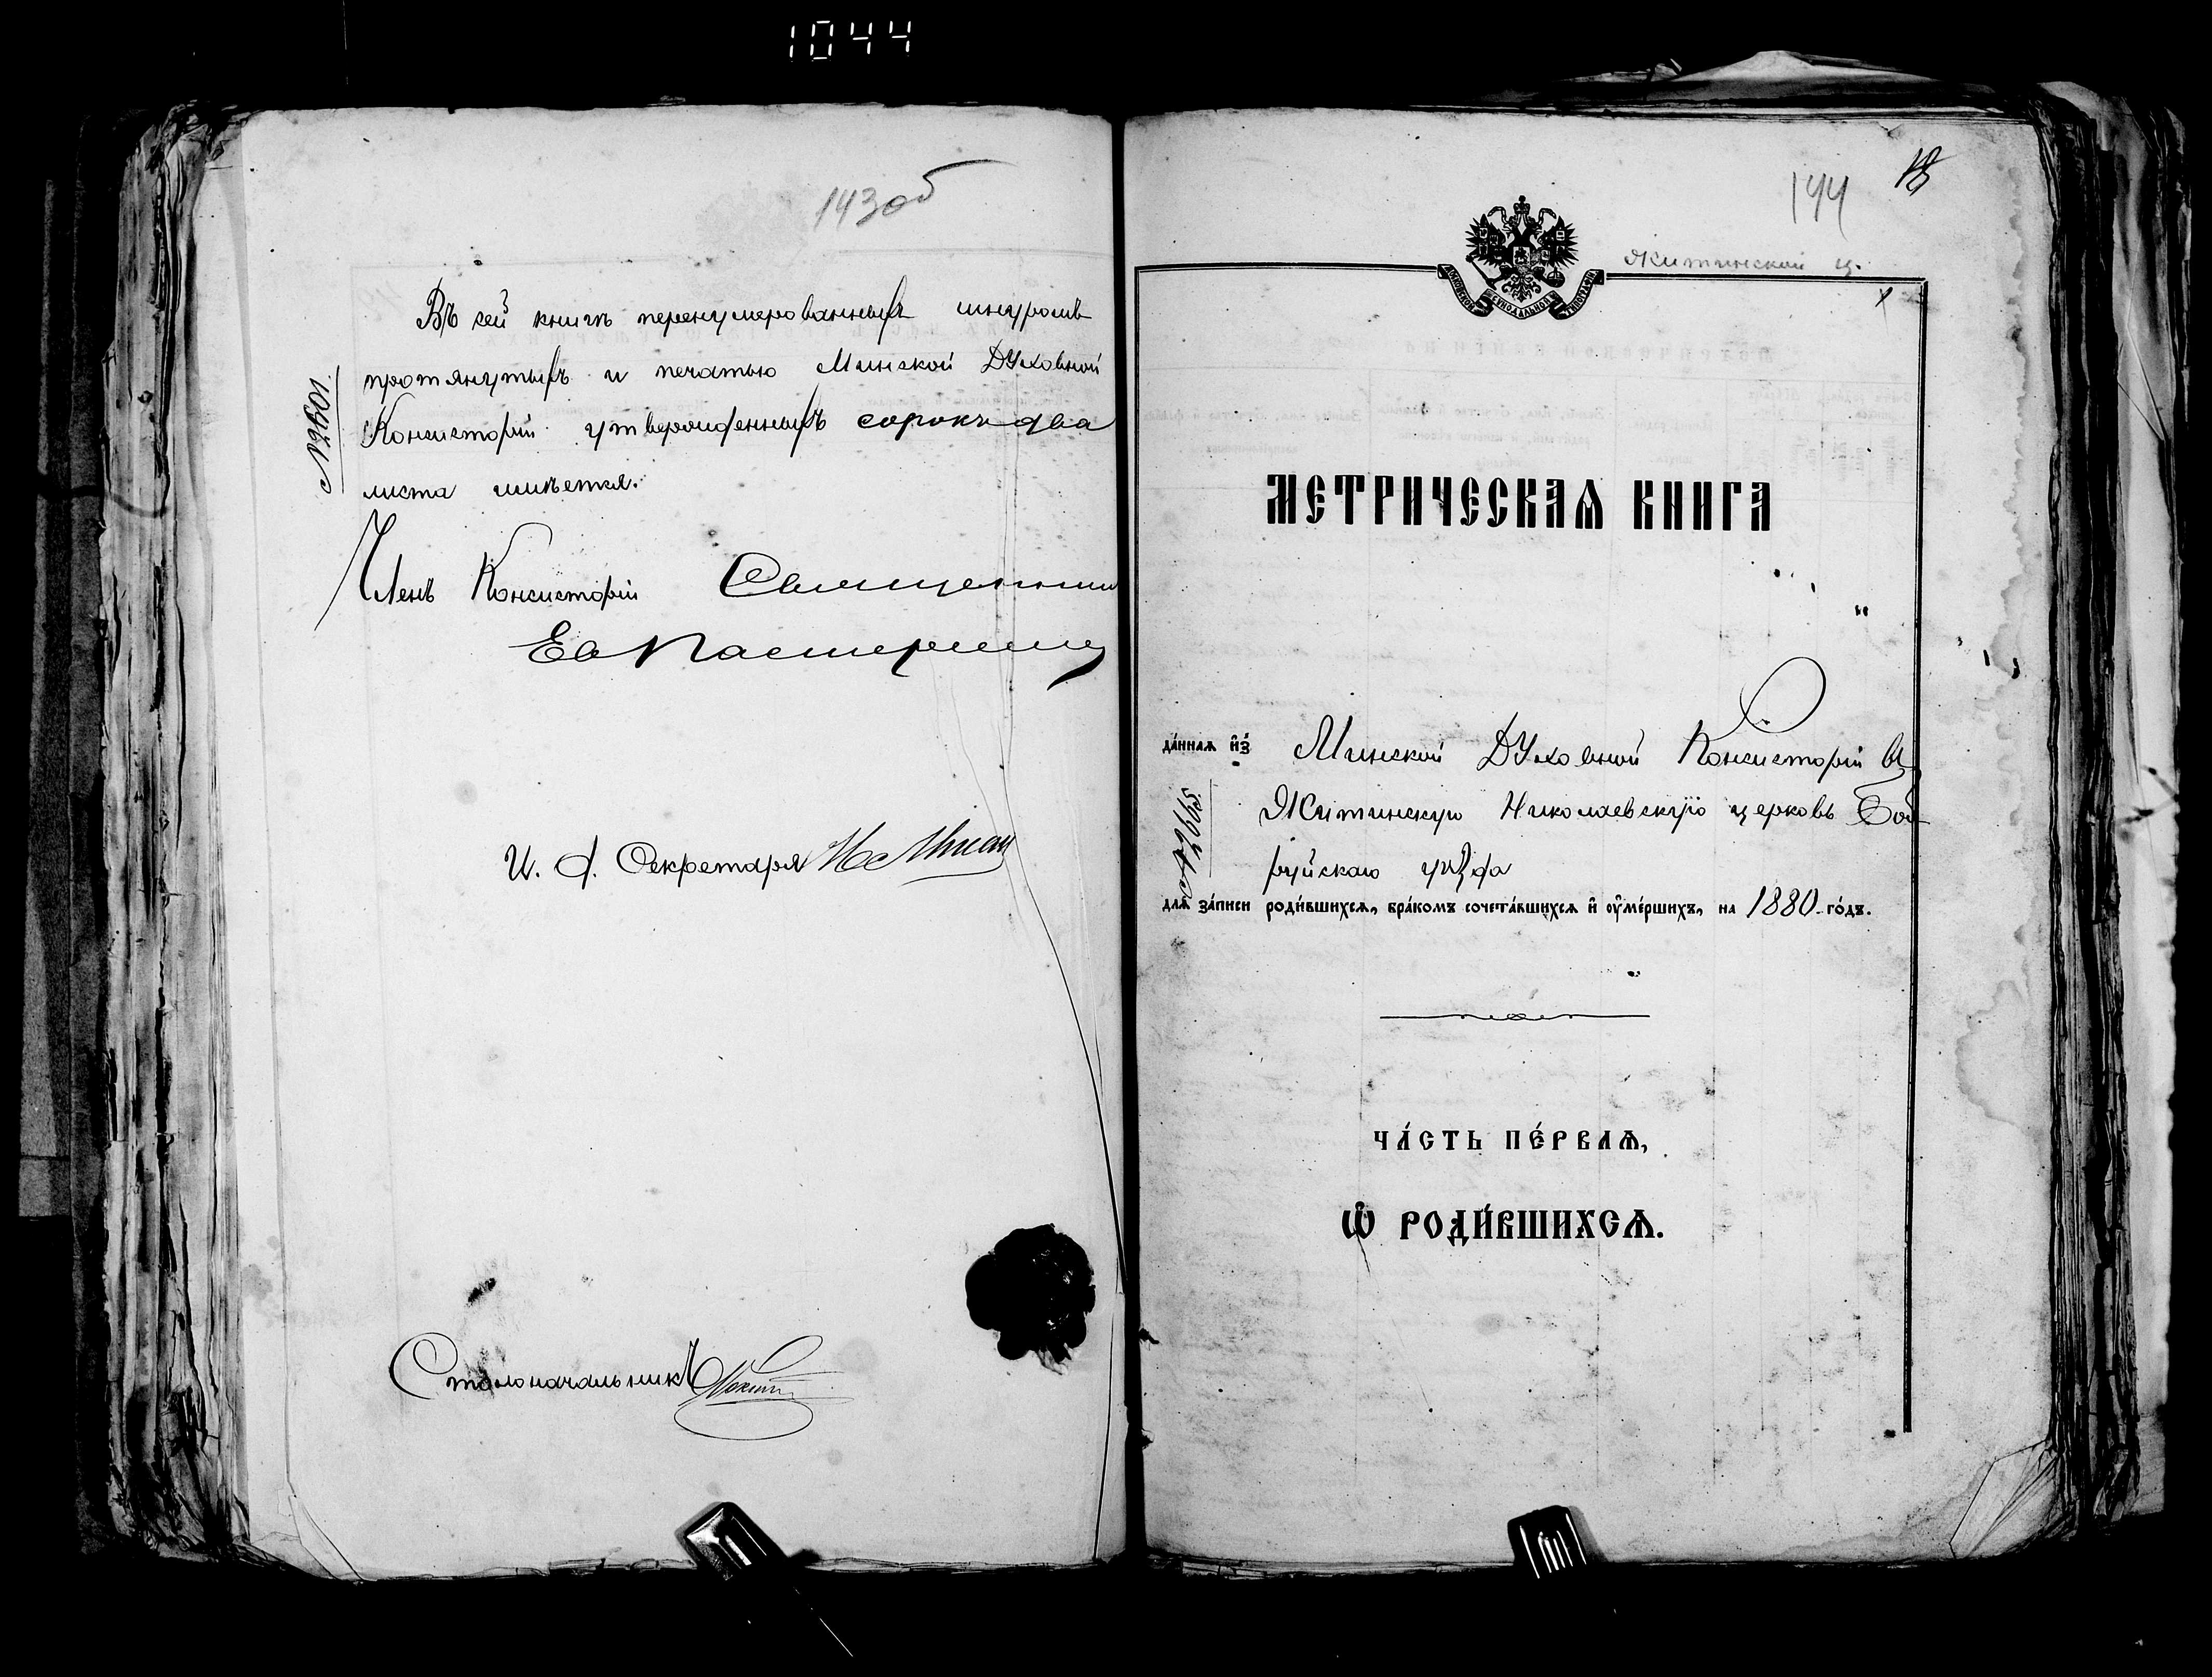 1044
143 об
Въ сей книгѣ перенумерованныхъ шнуромъ
протянутыхъ и печатью Минской Духовной
Консисторіи утвержденныхъ сорокъ два
листа имѣется.
Членъ Консисторіи Священникъ
И. д. Секретаря
Столоначальникъ
144
Житинской ц.
МОСКОВСКОЙ СѴНОДАЛЬНОЙ ТИПОГРАФІИ
МЕТРИЧЕСКАѦ КНИГА
да́ннаѧ и҆з̾ Минской Духовной Консисторіи въ
Житинскую Николаевскую церковь Боб
руйскаго уѣзда
длѧ̀ за́писи роди́вшихсѧ, бра́комъ сочета́вшихсѧ и҆ ᲂу҆ме́ршихъ, на 1880 го́дъ.
ЧА́СТЬ ПЕ́РВАѦ,
Ѡ҆ РОДИ́ВШИХСѦ.